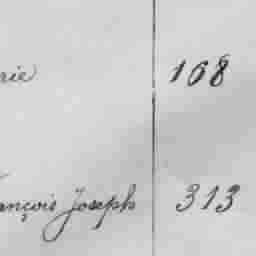 rie 168
ançois Joseph 313